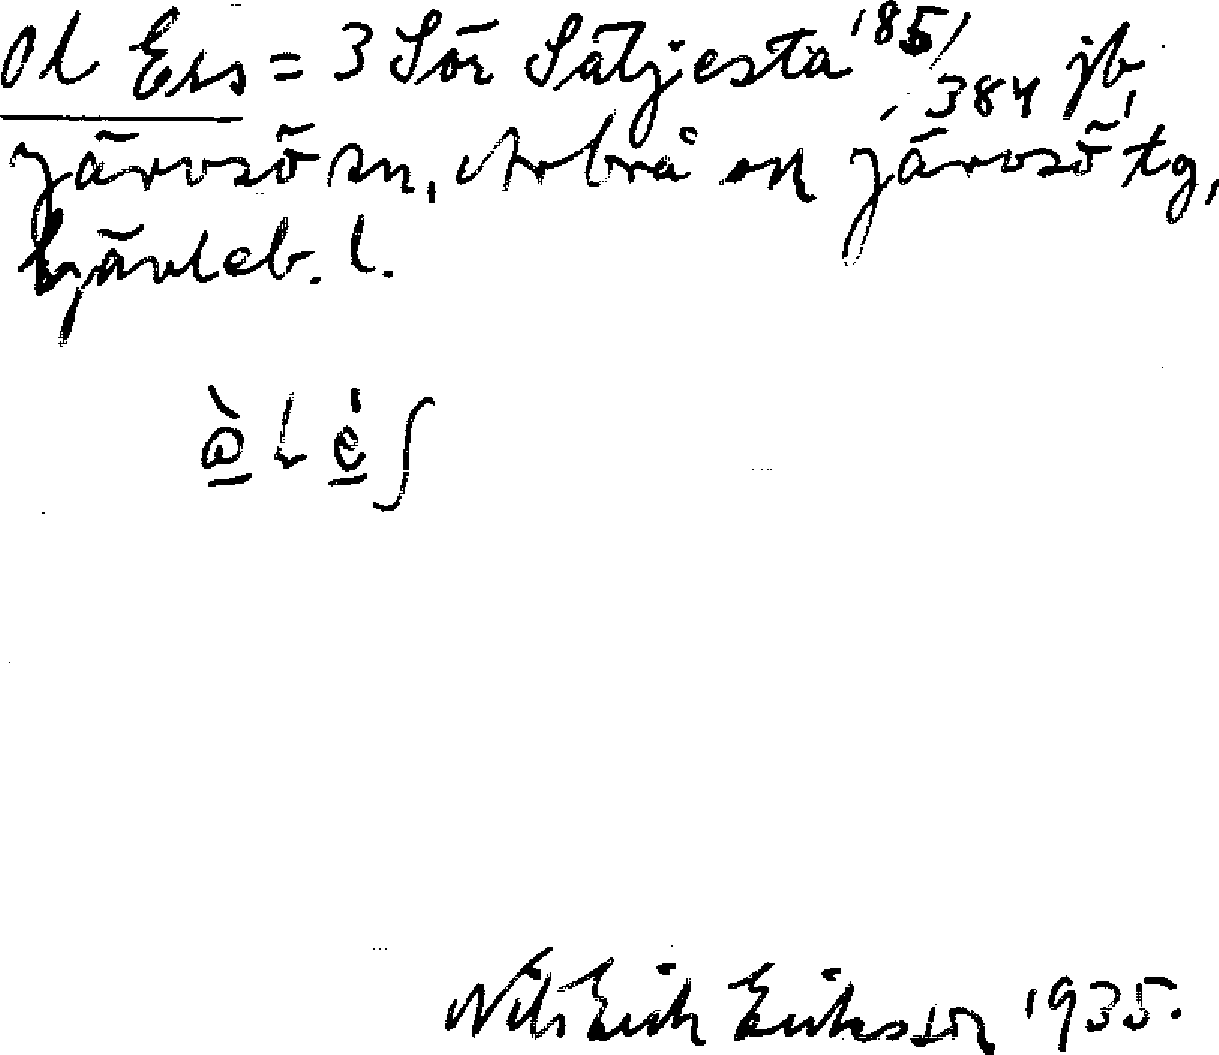 Ol Ers = 3 Sör Sätjesta 185/384 jb,
Järvsö sn, Arbrå och Järvsö tg,
Gävleb. l.
Nils Erik Eriksson 1935.